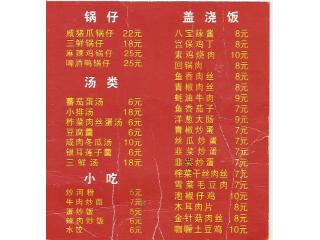 锅仔
咸猪爪锅仔 22元
三鲜锅仔 18元
麻辣鸡锅仔 25元
啤酒鸭锅仔 25元
汤类
蕃茄蛋汤 6元
小排汤 18元
榨菜肉丝蛋汤 6元
豆腐羹 6元
咸肉冬瓜汤 10元
银耳莲子羹 6元
三鲜汤 10元
小吃
炒河粉 5元
牛肉炒面 7元
蛋炒饭 5元
辣肉炒饭 6元
水饺 6元
盖浇饭
八宝辣酱 8元
宫保鸡丁 8元
素鸡烧肉 10元
回锅肉 8元
鱼香肉丝 8元
青椒肉丝 8元
蚝油牛肉 9元
鱼香茄子 7元
洋葱大肠 9元
青椒炒蛋 7元
韭菜炒蛋 7元
韭菜炒蛋 7元
榨菜干丝肉丝 7元
雪菜毛豆肉 7元
泡椒仔鸡 10元
木耳肉片 8元
金针菇肉丝 8元
咖喱土豆鸡 10元